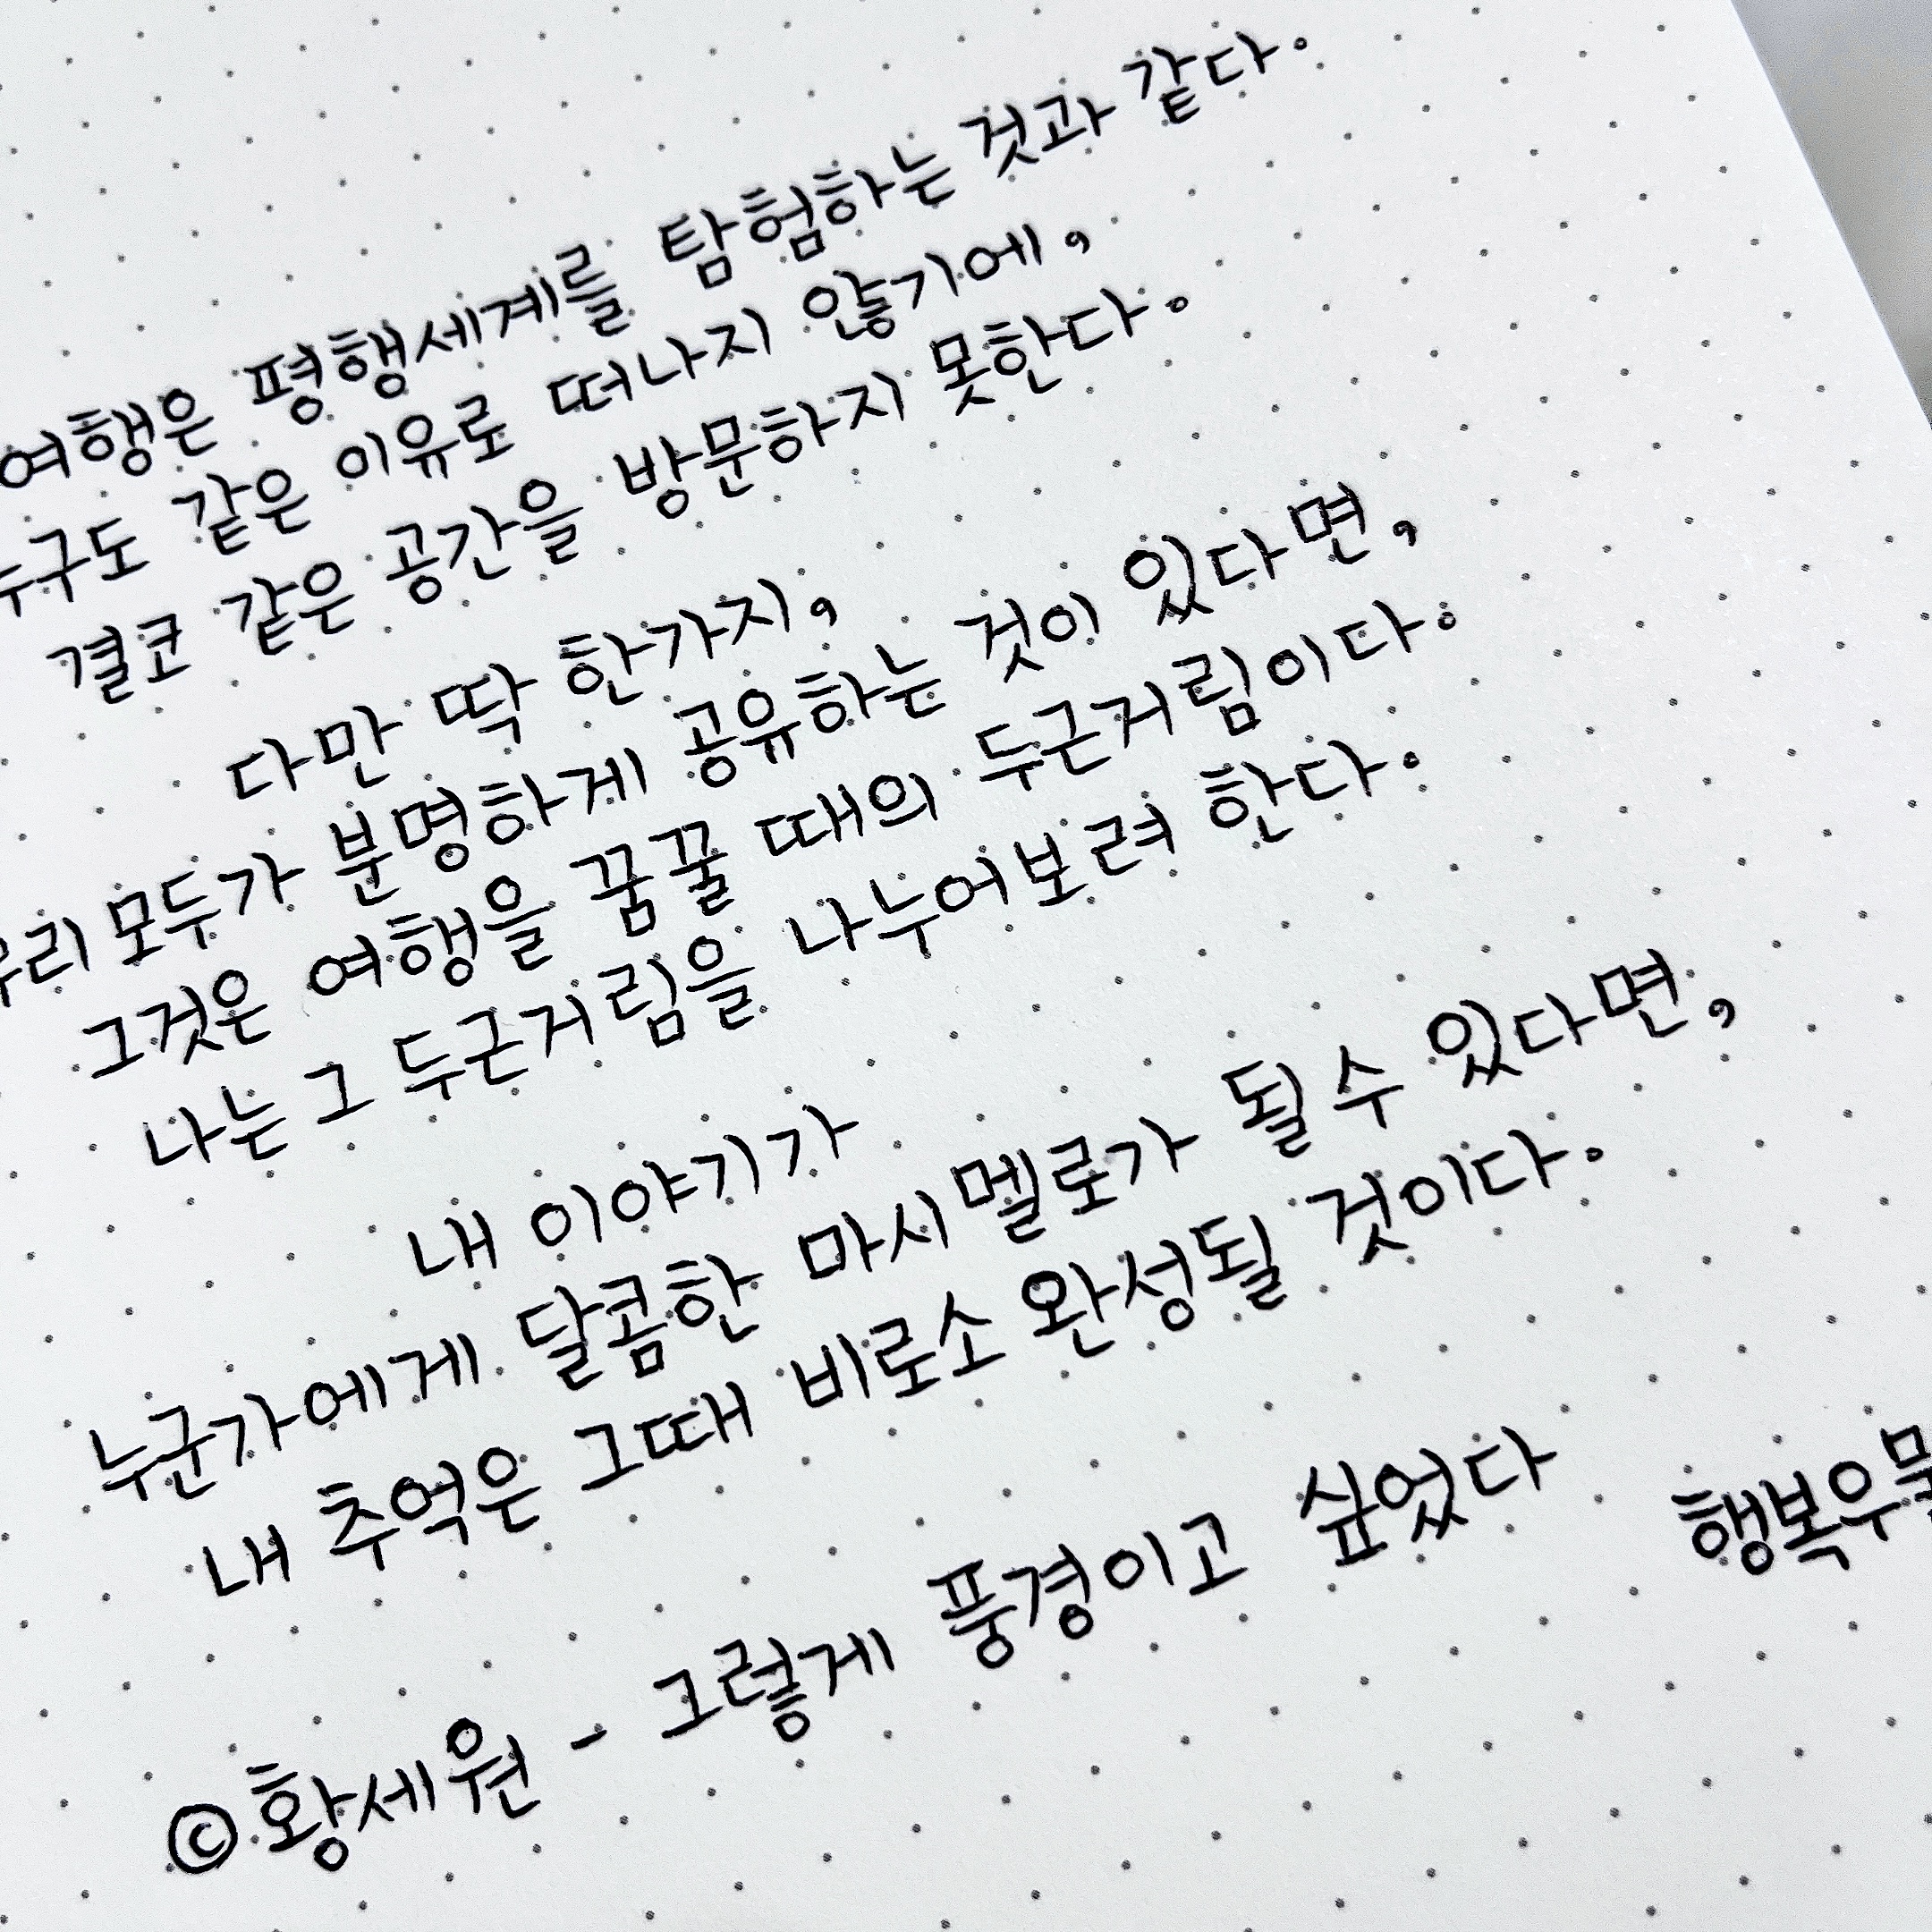 여행은 평행세계를 탐험하는 것과 같다.
누구도 같은 이유로 떠나지 않기에,
결코 같은 공간을 방문하지 못한다.
다만 딱 한가지,
우리 모두가 분명하게 공유하는 것이 있다면,
그것은 여행을 꿈꿀 때의 두근거림이다.
나는 그 두근거림을 나누어보려 한다.
내 이야기가
누군가에게 달콤한 마시멜로가 될 수 있다면,
내 추억은 그때 비로소 완성될 것이다.
©황세원 - 그렇게 풍경이고 싶었다 행복우물